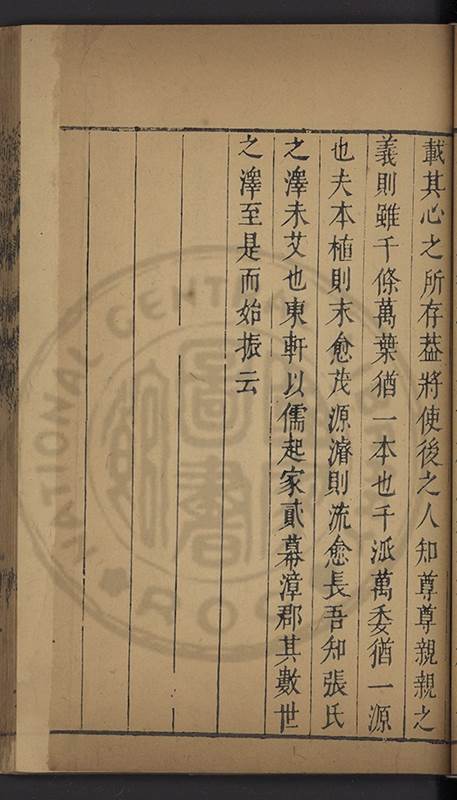 載其心之所存葢將使後之人知尊尊親親之
義則雖千條萬葉猶一本也千派萬委猶一源
也夫本植則末愈茂源濬則流愈長吾知張氏
之澤未艾也東軒以儒起家貳幕漳郡其數世
之澤至是而始振云